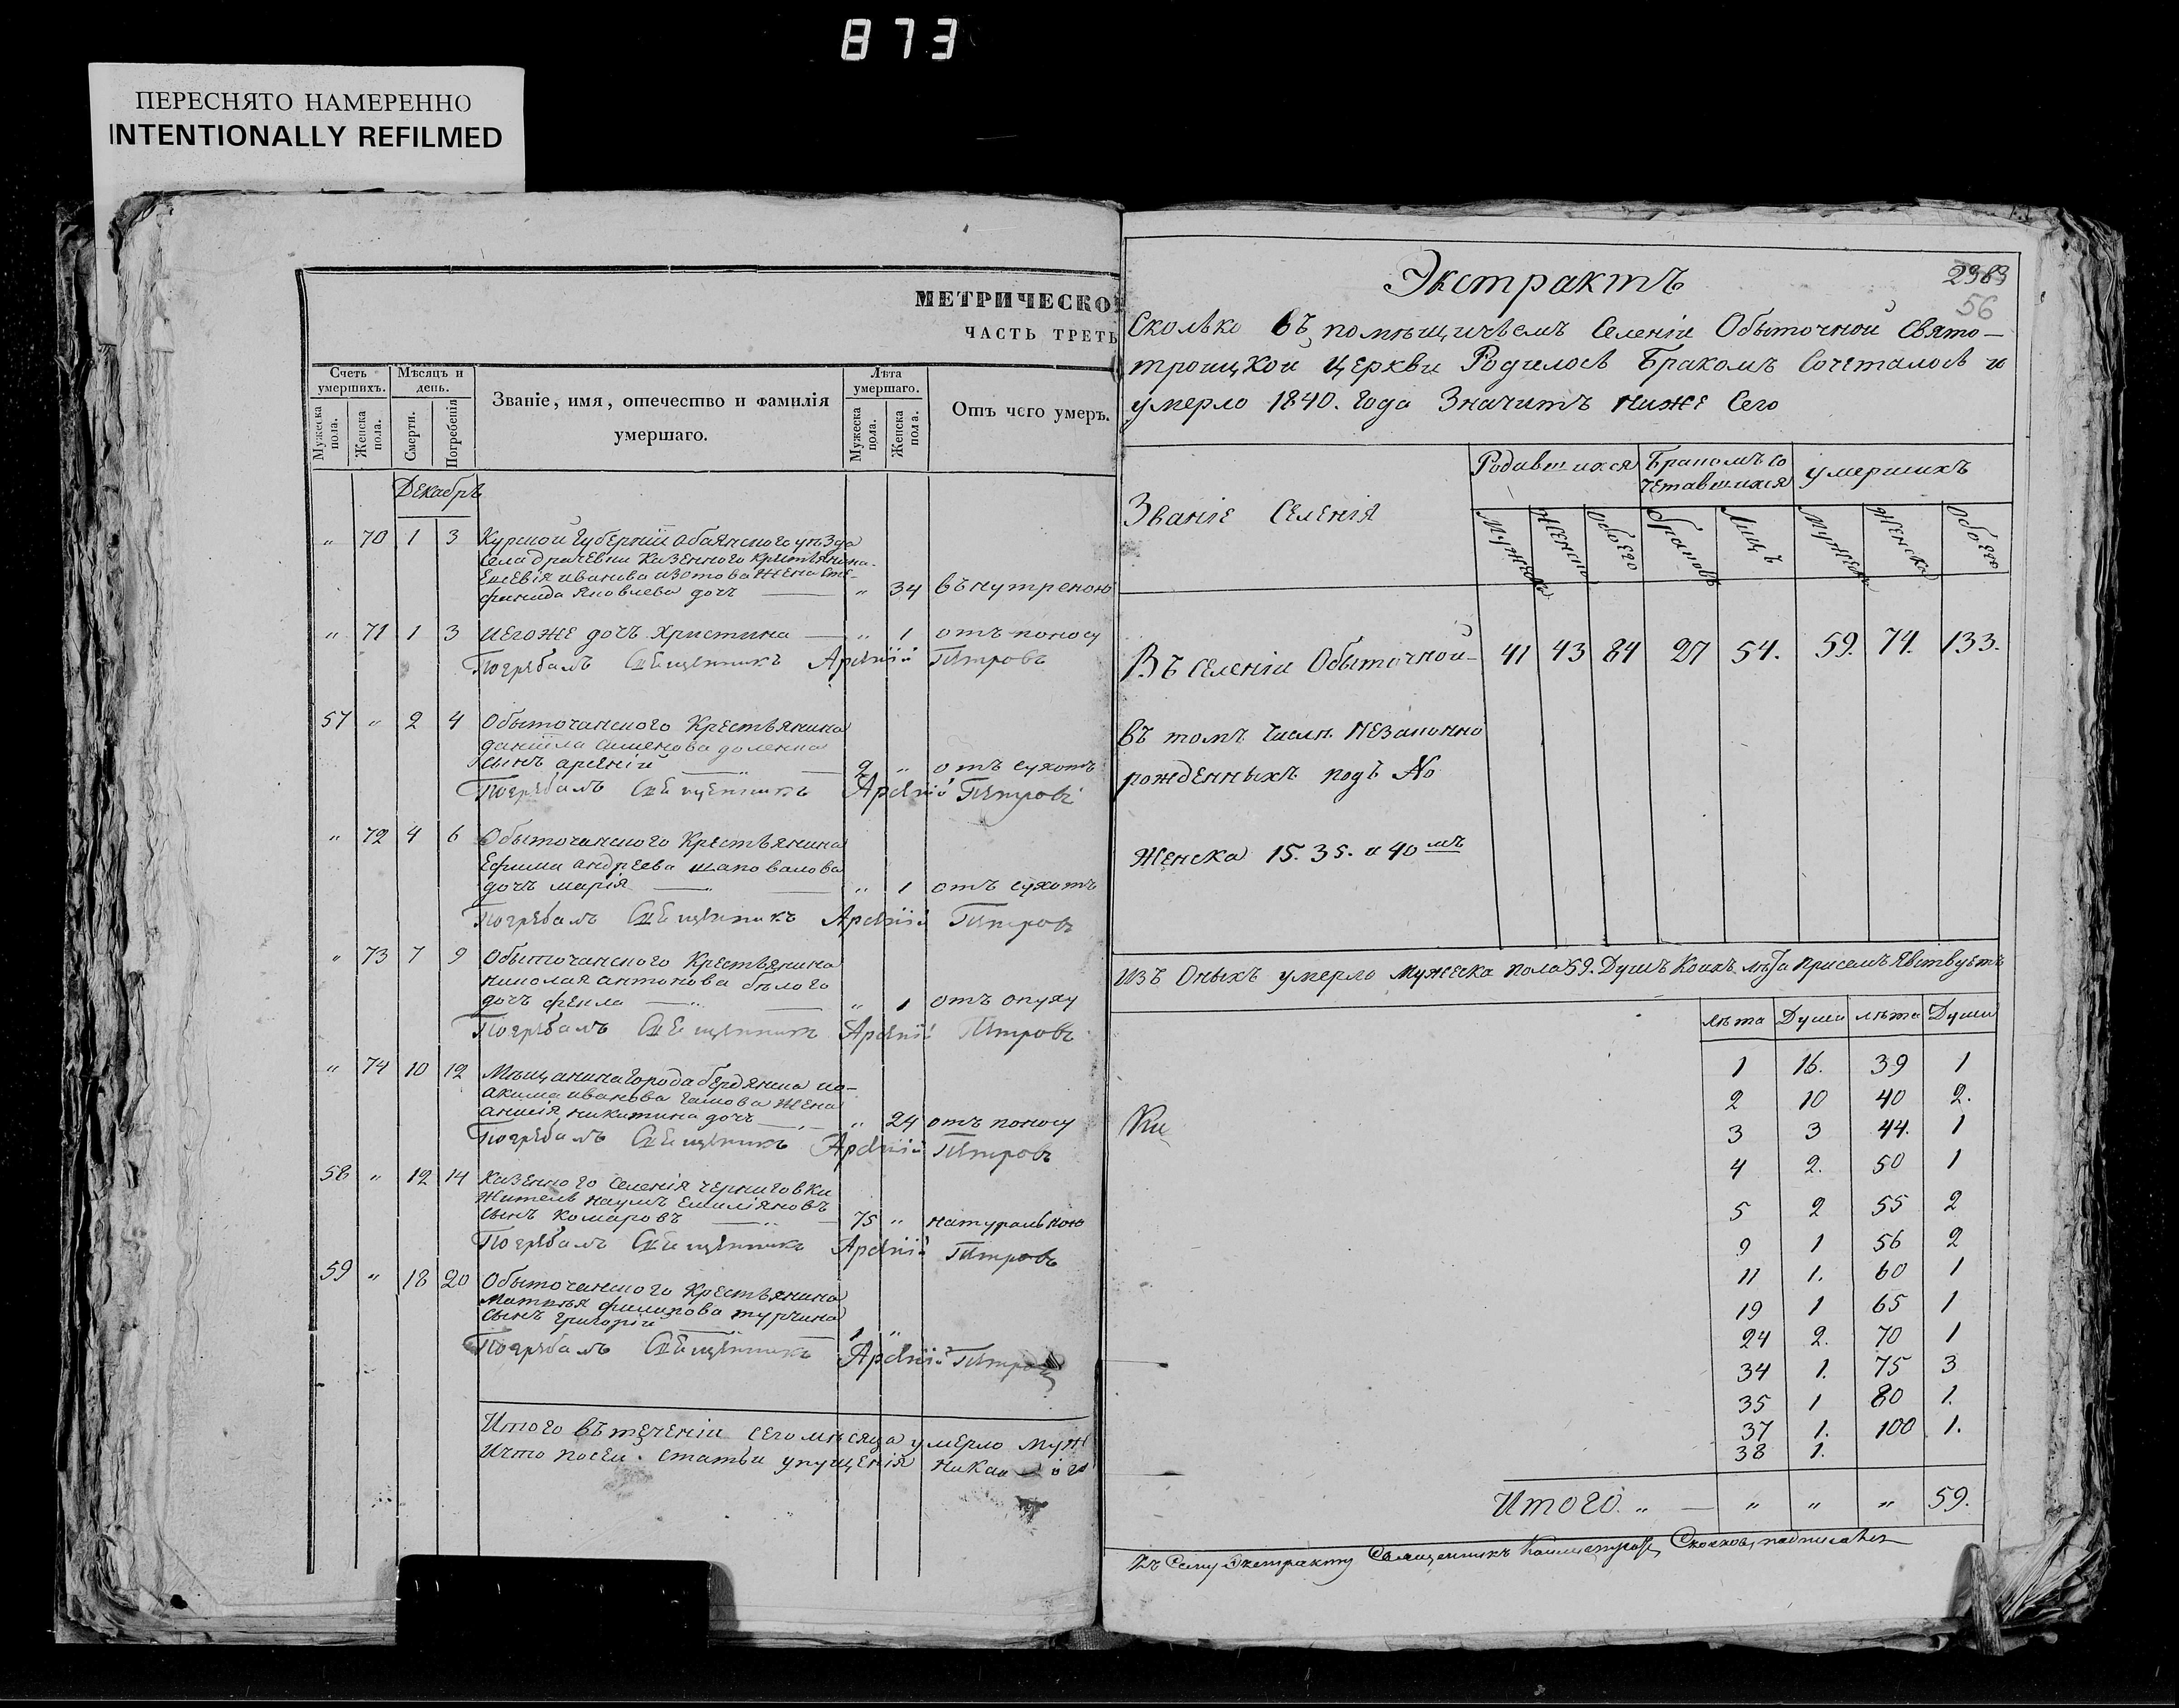 873
ПЕРЕСНЯТО НАМЕРЕННО
INTENTIONALLY REFILMED
МЕТРИЧЕСКО
ЧАСТЬ ТРЕТЬ
Счетъ умершихъ.
Мѣсяцъ и день.
Званіе, имя, отечество и фамилія умершаго.
Лѣта умершаго.
Отъ чего умеръ.
Мужеска пола.
Женска пола.
Смерти.
Погребенія
Мужеска пола.
Женска пола.
Декабрь
„ 70 1 3 Курской Губерніи Обаянского уѣзда
села Драчевки Казенного Крестьянина
Иванова Изотова жена
Яковлева дочь — „ 34 вънутреною
„ 71 1 3 иегоже дочь христина — „ 1 отъ поносу
Погребалъ Священникъ Арсеній Петровъ
57 „ 2 4 Обыточанского Крестьянина
даніила семенова доленка
сынъ арсеній — 2 „ отъ сухотъ
Погребалъ Священникъ Арсеній Петровъ
„ 72 4 6 Обыточанского Крестьянина
Ефима андреева шаповалова
дочь марія — „ 1 отъ сухотъ
Погребалъ Священникъ Арсеній Петровъ
„ 73 7 9 Обыточанского Крестьянина
николая антонова бѣлого
дочь фекла — „ 1 отъ опуху
Погребалъ Священникъ Арсеній Петровъ
„ 74 10 12 Мѣщанина города бердянска ио-
акима иванова жена
анисія никитина дочь — „ 24 отъ поносу
Погребалъ Священникъ Арсеній Петровъ
58 „ 12 14 Казенного селенія черниговки
житель наумъ Емиліановъ
сынъ комаровъ — 75 „ натуральною
Погребалъ Священникъ Арсеній Петровъ
59 „ 18 20 Обыточанского Крестьянина
Матвѣя филипова турчина
сынъ григорій — 1 „
Погребалъ Священникъ Арсеній Петровъ
Итого въ теченіи сего мѣсяца умерло муж
Ичто посей статьи упущенія никак
2363
56
Экстрактъ
Сколько въ помѣщичьемъ Селеніи Обыточной свято—
троицкой церкви Родилось Бракомъ Сочеталось и
умерло 1840. года Значитъ ниже сего
Званіе Селенія
Родившихся
Бракомъ со четавшихся
умершихъ
Мужеска
Женска
Обоего
браковъ
Лицъ
Мужеска
Женска
Обоего
Въ селеніи Обыточной— 41 43 84 27 54. 59. 74. 133.
въ томъ числѣ незаконно
рожденныхъ подъ No
Женска 15. 35. и 40 мъ
Изъ Оныхъ умерло мужеска пола 59. Душъ Коихъ лѣта присемъ явствуетъ
лѣта Души лѣта Души
1 16. 39 1
2 10 40 2.
3 3 44. 1
4 2. 50 1
5 2 55 2
9 1 56 2
11 1. 60 1
19 1 65 1
24 2. 70 1
34 1. 75 3
35 1 80 1.
37 1. 100 1.
38 1.
Итого „ — „ „ „ 59.
Къ Сему Экстракту Священникъ подписался